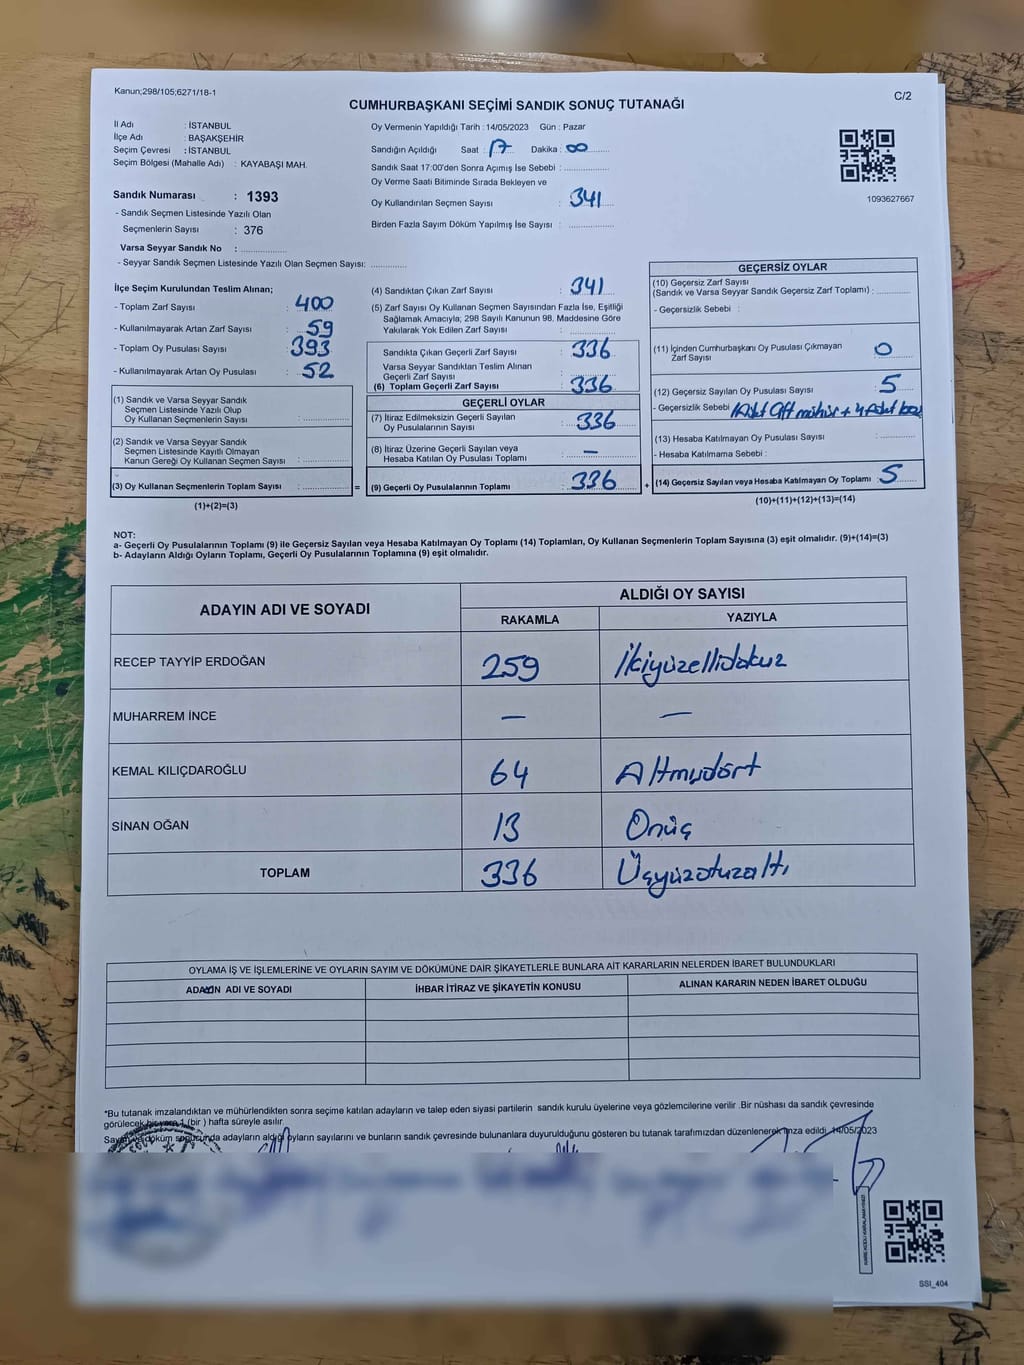 Kanun;298/105;6271/18-1
C/2
CUMHURBAŞKANI SEÇİMİ SANDIK SONUÇ TUTANAĞI
İl Adı : İSTANBUL
İlçe Adı : BAŞAKŞEHİR
Seçim Çevresi : İSTANBUL
Seçim Bölgesi (Mahalle Adı) : KAYABAŞI MAH.
Sandık Numarası : 1393
- Sandık Seçmen Listesinde Yazılı Olan
Seçmenlerin Sayısı : 376
Varsa Seyyar Sandık No :
- Seyyar Sandık Seçmen Listesinde Yazılı Olan Seçmen Sayısı:
Oy Vermenin Yapıldığı Tarih : 14/05/2023 Gün : Pazar
Sandığın Açıldığı Saat : 17 Dakika : 00
Sandık Saat 17:00'den Sonra Açımış İse Sebebi :
Oy Verme Saati Bitiminde Sırada Bekleyen ve
Oy Kullandırılan Seçmen Sayısı : 341
Birden Fazla Sayım Döküm Yapılmış İse Sayısı :
1093627667
İlçe Seçim Kurulundan Teslim Alınan;
- Toplam Zarf Sayısı : 400
- Kullanılmayarak Artan Zarf Sayısı : 59
- Toplam Oy Pusulası Sayısı : 393
- Kullanılmayarak Artan Oy Pusulası : 52
(1) Sandık ve Varsa Seyyar Sandık
Seçmen Listesinde Yazılı Olup
Oy Kullanan Seçmenlerin Sayısı :
(2) Sandık ve Varsa Seyyar Sandık
Seçmen Listesinde Kayıtlı Olmayan
Kanun Gereği Oy Kullanan Seçmen Sayısı :
(3) Oy Kullanan Seçmenlerin Toplam Sayısı : =
(1)+(2)=(3)
(4) Sandıktan Çıkan Zarf Sayısı : 341
(5) Zarf Sayısı Oy Kullanan Seçmen Sayısından Fazla İse, Eşitliği
Sağlamak Amacıyla; 298 Sayılı Kanunun 98. Maddesine Göre
Yakılarak Yok Edilen Zarf Sayısı :
Sandıkta Çıkan Geçerli Zarf Sayısı : 336
Varsa Seyyar Sandıktan Teslim Alınan
Geçerli Zarf Sayısı :
(6) Toplam Geçerli Zarf Sayısı : 336
GEÇERLİ OYLAR
(7) İtiraz Edilmeksizin Geçerli Sayılan
Oy Pusulalarının Sayısı : 336
(8) İtiraz Üzerine Geçerli Sayılan veya
Hesaba Katılan Oy Pusulası Toplamı : —
(9) Geçerli Oy Pusulalarının Toplamı : 336 +
GEÇERSİZ OYLAR
(10) Geçersiz Zarf Sayısı
(Sandık ve Varsa Seyyar Sandık Geçersiz Zarf Toplamı) :
- Geçersizlik Sebebi :
(11) İçinden Cumhurbaşkanı Oy Pusulası Çıkmayan
Zarf Sayısı : 0
(12) Geçersiz Sayılan Oy Pusulası Sayısı : 5
- Geçersizlik Sebebi : 1 Adet Çift mühür + 4 Adet boş
(13) Hesaba Katılmayan Oy Pusulası Sayısı :
- Hesaba Katılmama Sebebi :
(14) Geçersiz Sayılan veya Hesaba Katılmayan Oy Toplamı : 5
(10)+(11)+(12)+(13)=(14)
NOT:
a- Geçerli Oy Pusulalarının Toplamı (9) ile Geçersiz Sayılan veya Hesaba Katılmayan Oy Toplamı (14) Toplamları, Oy Kullanan Seçmenlerin Toplam Sayısına (3) eşit olmalıdır. (9)+(14)=(3)
b- Adayların Aldığı Oyların Toplamı, Geçerli Oy Pusulalarının Toplamına (9) eşit olmalıdır.
ADAYIN ADI VE SOYADI
ALDIĞI OY SAYISI
RAKAMLA YAZIYLA
RECEP TAYYİP ERDOĞAN 259 İkiyüzellidokuz
MUHARREM İNCE — —
KEMAL KILIÇDAROĞLU 64 Altmışdört
SİNAN OĞAN 13 Onüç
TOPLAM 336 Üçyüzotuzaltı
OYLAMA İŞ VE İŞLEMLERİNE VE OYLARIN SAYIM VE DÖKÜMÜNE DAİR ŞİKAYETLERLE BUNLARA AİT KARARLARIN NELERDEN İBARET BULUNDUKLARI
ADAYIN ADI VE SOYADI İHBAR İTİRAZ VE ŞİKAYETİN KONUSU ALINAN KARARIN NEDEN İBARET OLDUĞU
*Bu tutanak imzalandıktan ve mühürlendikten sonra seçime katılan adayların ve talep eden siyasi partilerin sandık kurulu üyelerine veya gözlemcilerine verilir .Bir nüshası da sandık çevresinde
görülecek bir yere 1 (bir ) hafta süreyle asılır
Sayım ve döküm sonucunda adayların aldığı oyların sayılarını ve bunların sandık çevresinde bulunanlara duyurulduğunu gösteren bu tutanak tarafımızdan düzenlenerek imza edildi. 14/05/2023
SSI_404